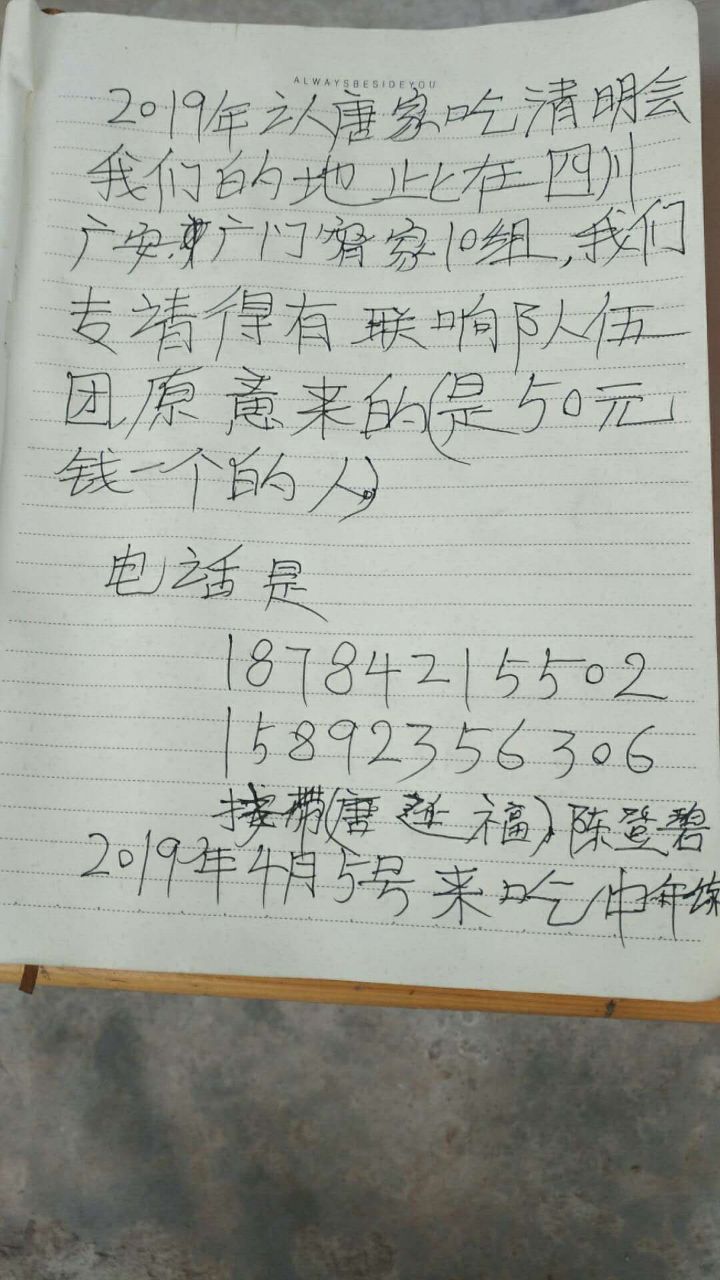 ALWAYSBESIDEYOU
2019年认唐家吃清明会
我们的地止比在四川
广安广门窝家10组,我们
专请得有联响队伍
团原意来的(是50元
钱一个的人)
电话是
18784215502
15892356306
接带(唐延福),陈登碧
2019年4月5号来吃中午